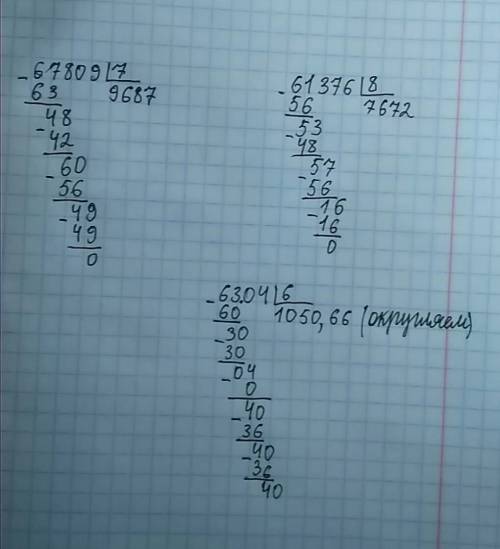 -67809|7
63 9687
48
-42
60
-56
-49
49
0
-61376|8
56 7672
53
-48
57
-56
16
-16
0
-6304|6
60 1050,66 (округляем)
-30
30
-04
0
-40
36
-40
36
40